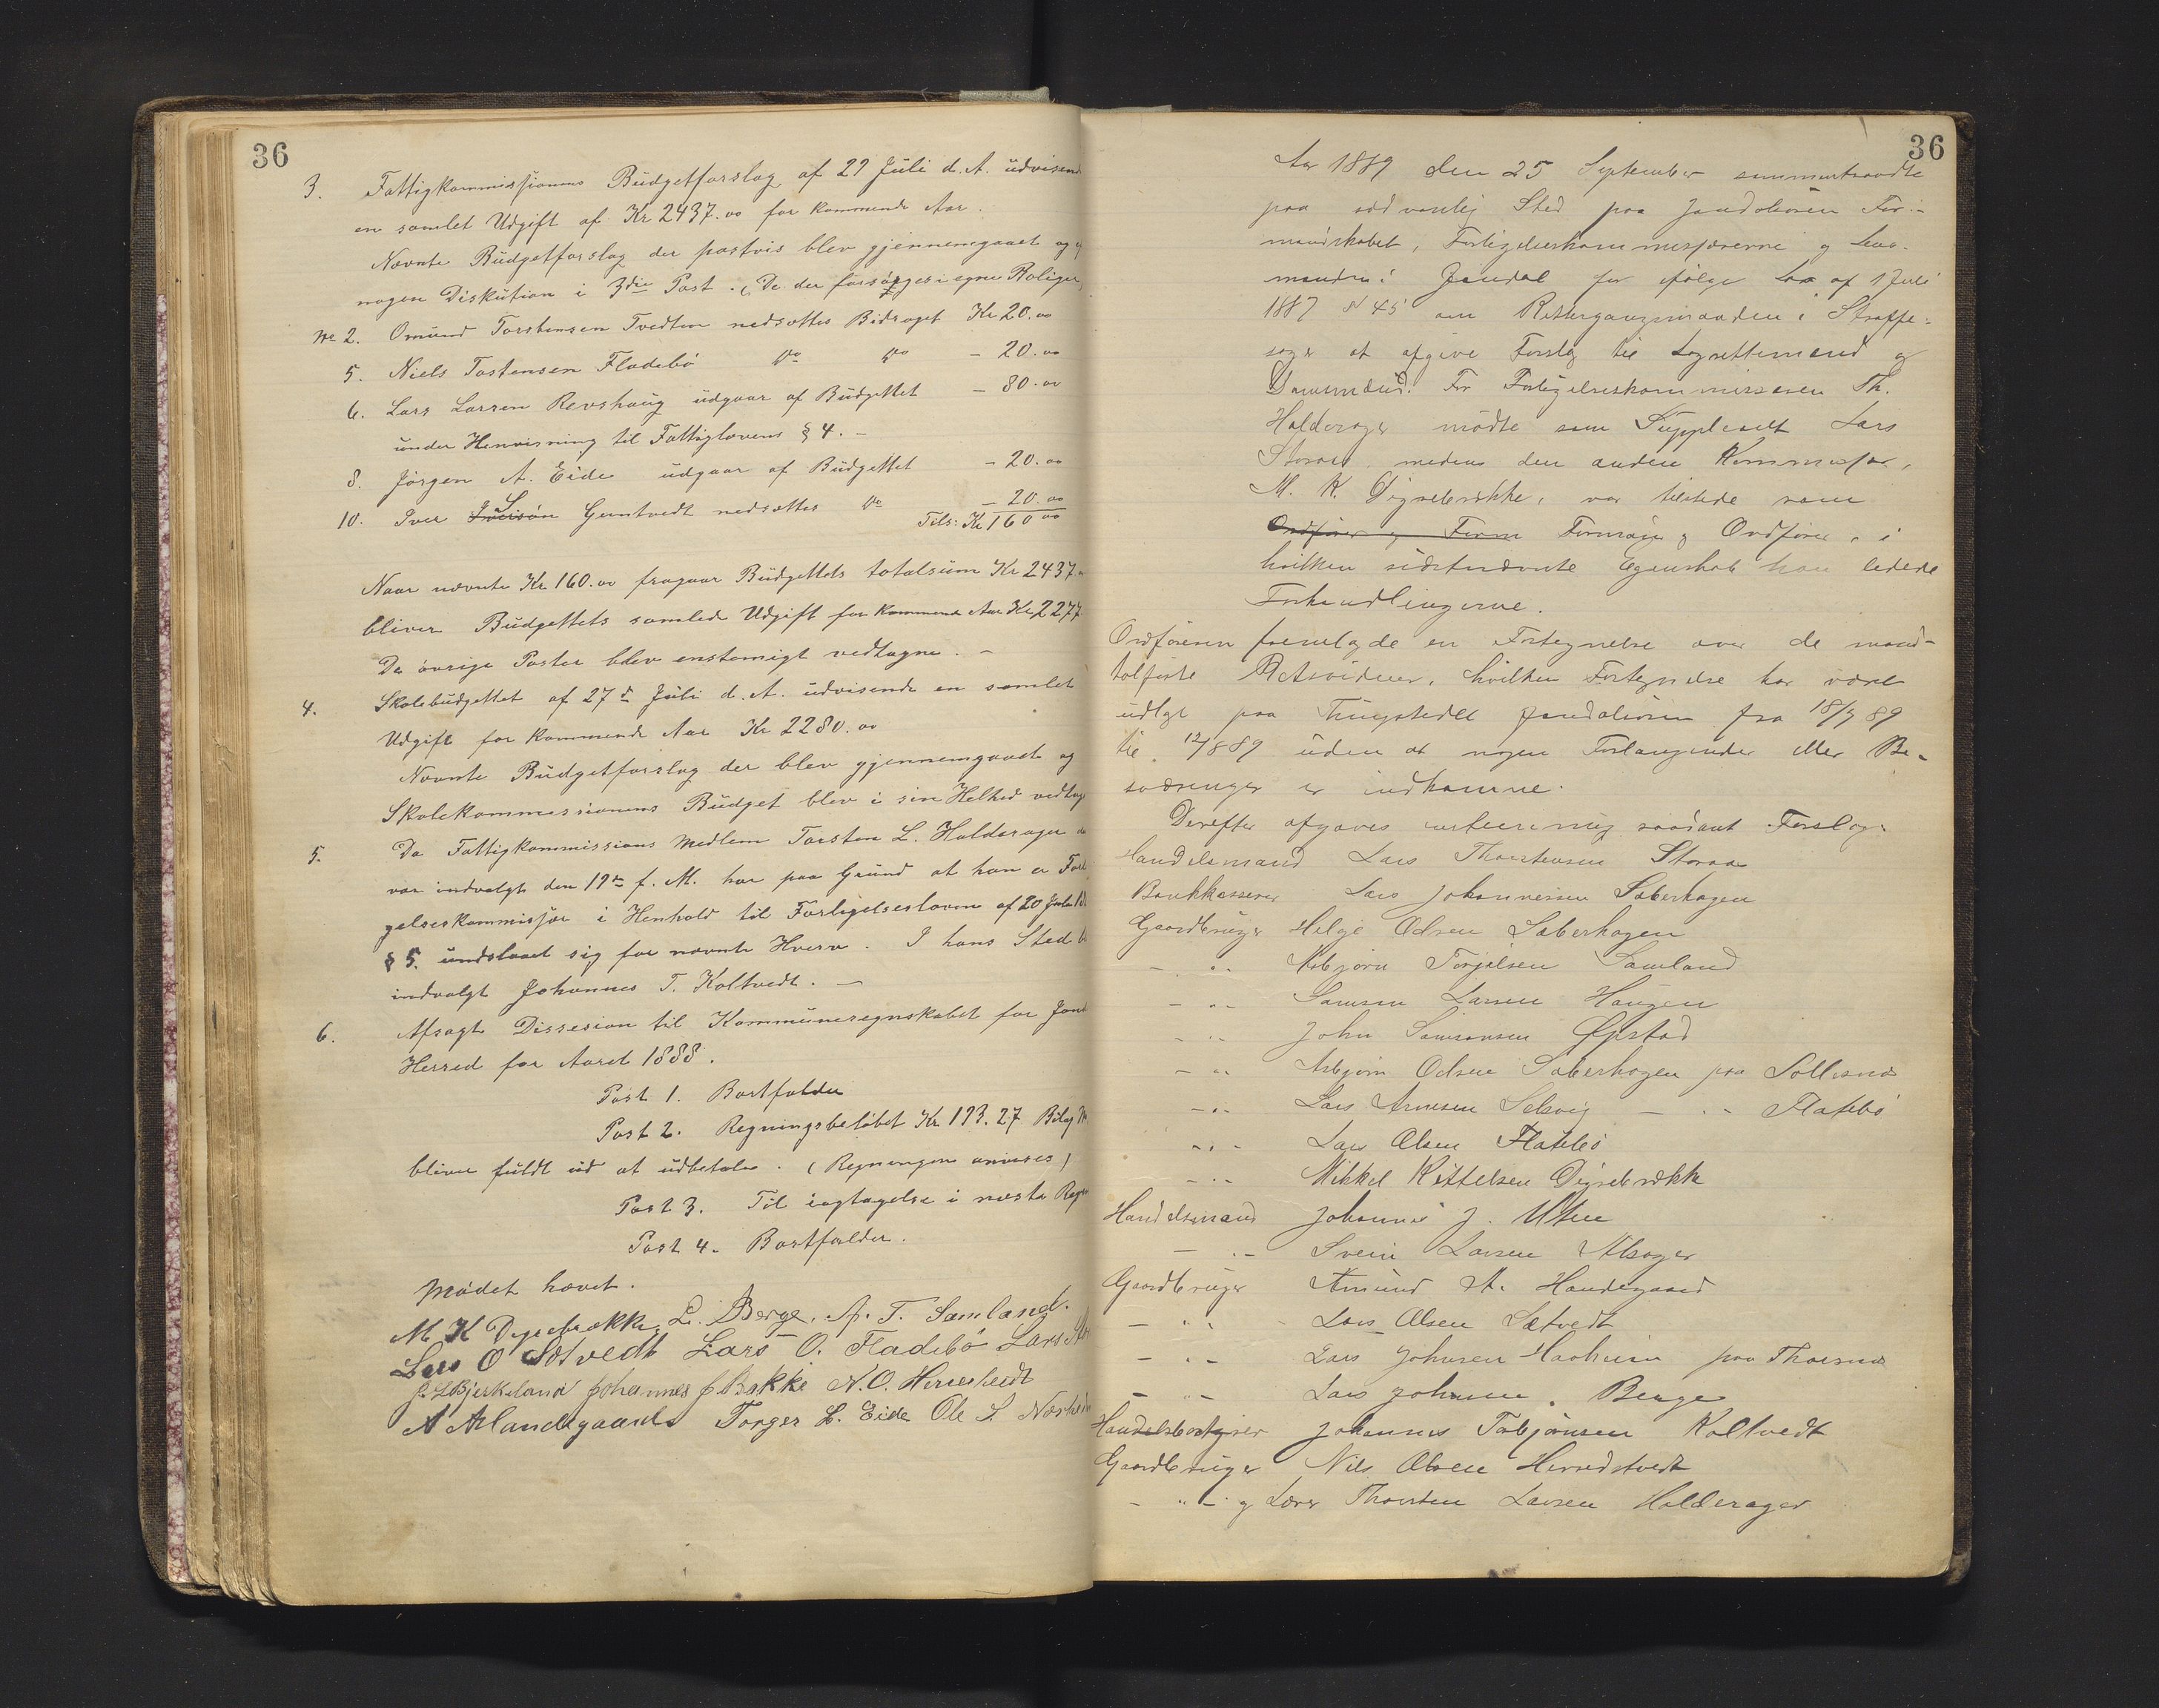 36
3. Fattigkommissionens Budgetforslag af 27 Juli d. A. udvisende
en samlet Udgift af Kr 2437.00 for kommende Aar.
Nævnte Budgetforslag der postvis blev gjennemgaaet og
nogen Diskution i 3die Post. (De der forsørges i egne Boliger)
No 2. Omund Torstensen Tvedten nedsættes Bidraget Kr 20.00
5. Niels Tostensen Fladebö do do - 20.00
6. Lars Larsen Revshaug udgaar af Budgettet - 80.00
under Henvisning til Fattiglovens § 4. -
8. Jörgen A. Eide udgaar af Budgettet - 20.00
10. Iver Guntvedt nedsættes do - 20.00
Tils: Kr 160 00
Naar nævnte Kr 160.00 fragaar Budgettets totalsum Kr 2437
bliver Budgettets samlede Udgift for kommende Aar Kr 2277
De övrige Poster blev enstemigt vedtagne. -
4. Skolebudgettet af 27de Juli d. A. udvisende en samlet
Udgift for kommende Aar Kr 2280.00
Nævnte Budgetforslag der blev gjennemgaaet og
Skolekommissionens Budget blev i sin Helhed vedtag
5. Da Fattigkommissions Medlem Torsten L. Haldorager
var indvalgt den 19de f. M. har paa Grund at han er Forli
gelseskommisjær i Henhold til Forligelsesloven af 20 Juli
§ 5. undslaaet sig for nævnte Hverv. I hans Sted
indvalgt Johannes T. Koltvedt. -
6. Afsagt Dissesion til Kommuneregnskabet for
Herred for Aaret 1888.
Post 1. Bortfalder
Post 2. Regningsbelöbet Kr 193.27 Bilag
bliver fuldt ud at udbetale. (Regningen anvises)
Post 3. Til iagtagelse i næste
Post 4. Bortfalder.
Mödet hævet.
M K Digrebrække, L. Berge, A. T. Samland.
Lars O Sætvedt Lars O. Fladebö Lars
Bjerkeland Johannes J Bakke N. O. Herrestvedt
A Aalandsgaard Torger L. Eide Ole S. Næsheim
36
Aar 1889 den 25 September sammentraadte
paa sædvanlig Sted paa Jondalsören For-
mandskabet, Forligelseskommisjærerne og Lens-
manden i Jondal for ifölge Lov af 1 Juli
1887 № 45 om Rettergangsmaaden i Straffe-
sager at afgive Forslag til Lagrettemænd og
Domsmænd. For Forligelseskommissæren Th.
Haldorager mödte som Suppleant Lars
Storaas, medens den anden Kommisjær,
M. K. Digrebrække, var tilstede som
Ordförer og Form Formand og Ordförer, i
hvilken sidstnævnte Egenskab han ledede
Forhandlingerne.
Ordföreren fremlagde en Fortegnelse over de mand-
talförte Retsvidner, hvilken Fortegnelse har været
udlagt paa Thingstedet Jondalsören fra 18/7 89
til 12/8 89 uden at nogen Forlangender eller Be-
sværinger er indkomne.
Derefter afgaves saadant Forslag:
Handelsmand Lars Thorstensen Storaas
Bankkasserer Lars Johannessen Saberhagen
Gaardbruger Helge Odsen Saberhagen
- " - Asbjörn Torjilsen Samland
- " - Samson Larsen Haugen
- " - John Samsonsen Öpstad
- " - Asbjörn Odsen Saberhagen paa Sollesnæs
- " - Lars Arnesen Selsvig - " - Flatebö
- " - Lars Olsen Flatebö
- " - Mikkel Kittelsen Digrebrække
Handelsmand Johannes J. Utne
- " - Svein Larsen Alsager
Gaardbruger Amund A. Handegaard
- " - Lars Olsen Sætvedt
- " - Lars Johnsen Haaheim paa Thorsnæs
- " - Lars Johnsen Berge
Handelsbestyrer Johannes Torbjörnsen Koltvedt
Gaardbruger Nils Olsen Herredstvedt
- " - og Lærer Thorsten Larsen Halderager